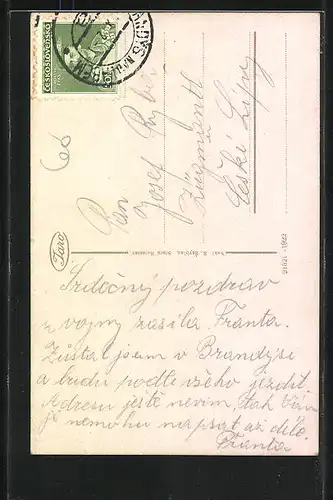 ČESKOSLOVENSKO
BRANDÝS N. LAB.
Pan
Josef Rybín
Česká Lípa
Taro
Srdečný pozdrav
z vojny zasílá Franta.
Zůstal jsem v Brandýse
a budu podle všeho jezdit.
Adresu ještě nevím, tak Vám
je nemohu napsat až déle.
Franta